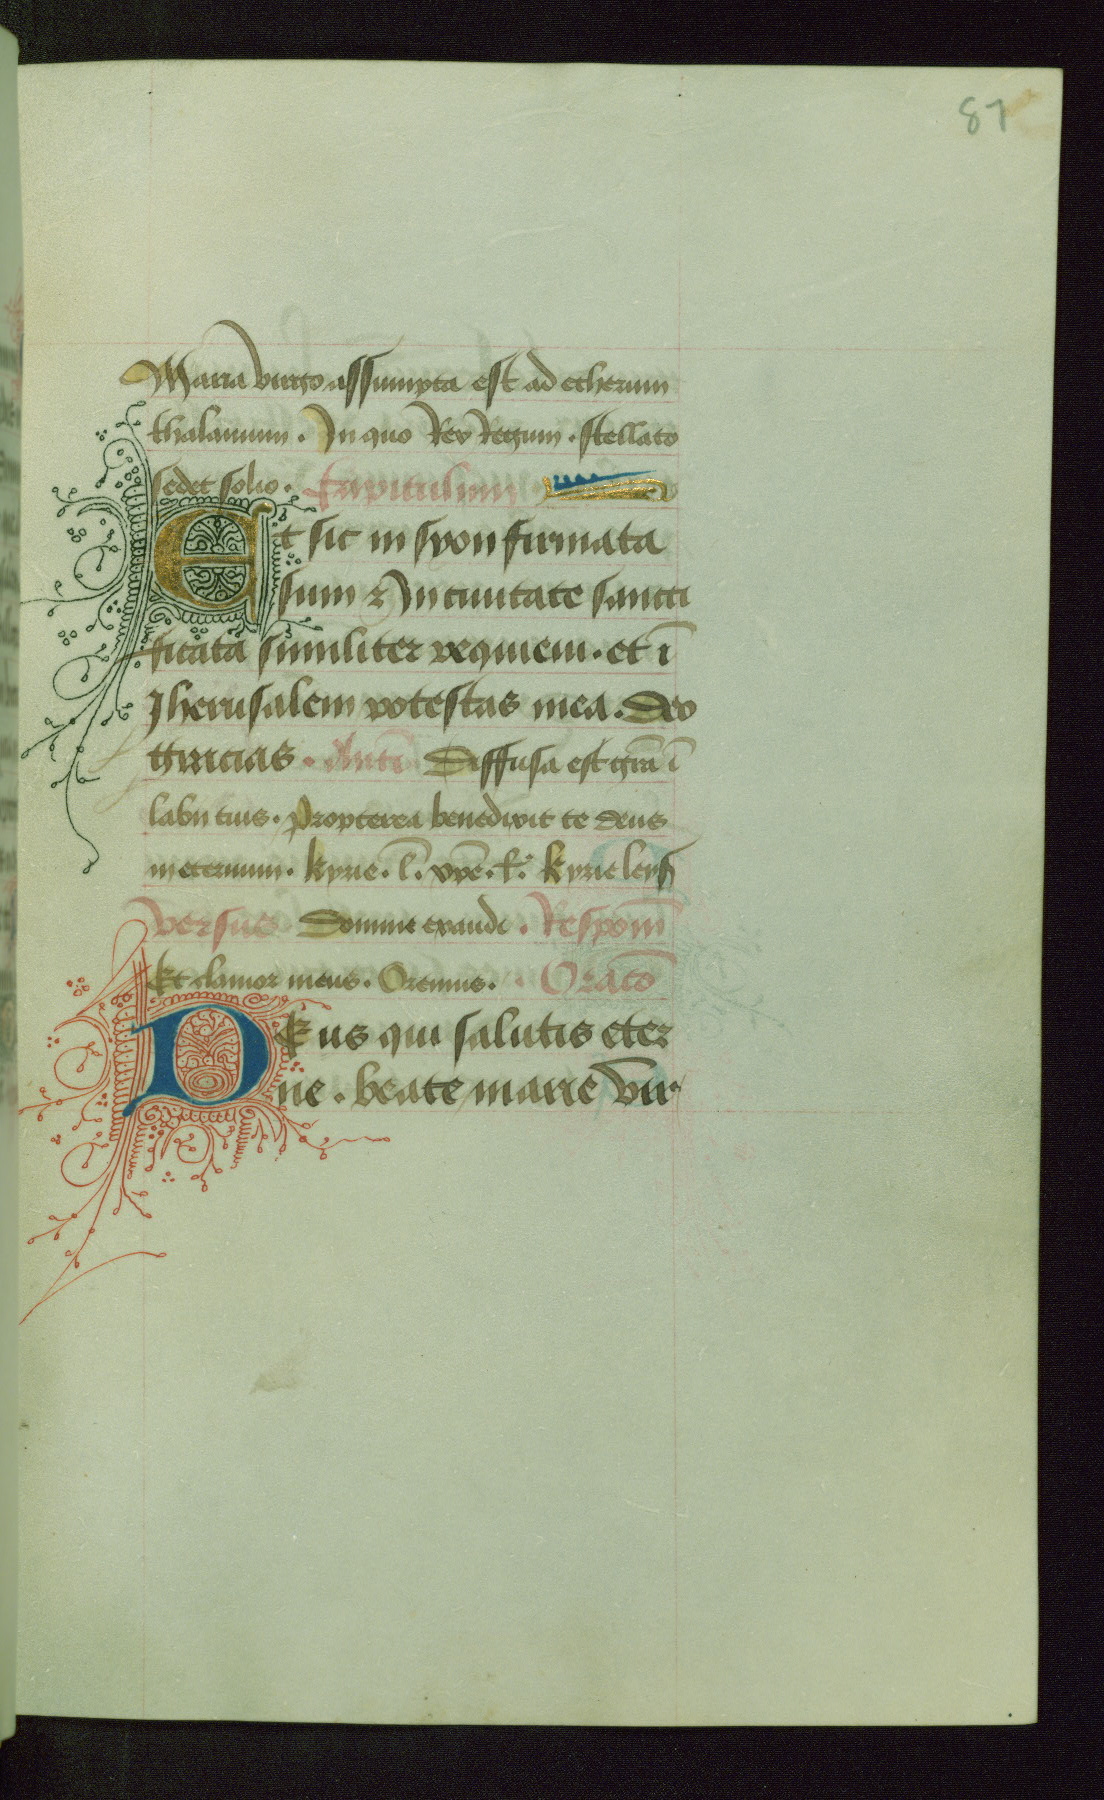 87
Maria virgo assumpta est ad etherum
thalamum. In quo Rex Regum. stellato
sedet solio. Capitulum
Et sic in syon firmata
sum & In ciuitate sancti
ficata similiter requiem. et ī
Jherusalem potestas mea. Deo
gracias. Anti. Diffusa est gr̄a ī
labiis tuis. Propterea benedixit te deus
in eternum. Kyrie. l. xp̄e. l. Kyrieleys
versus. Domine exaudi. Respom̄
Et clamor meus. Oremus. Oracō
Deus qui salutis eter
ne. beate marie vir